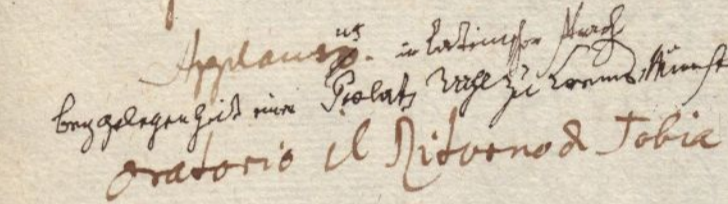 Applausus. in lateinischer Sprach
bey gelegenheit einer Prelats Wahl zu Crems-Münster
Oratorio Il Ritorno di Tobia